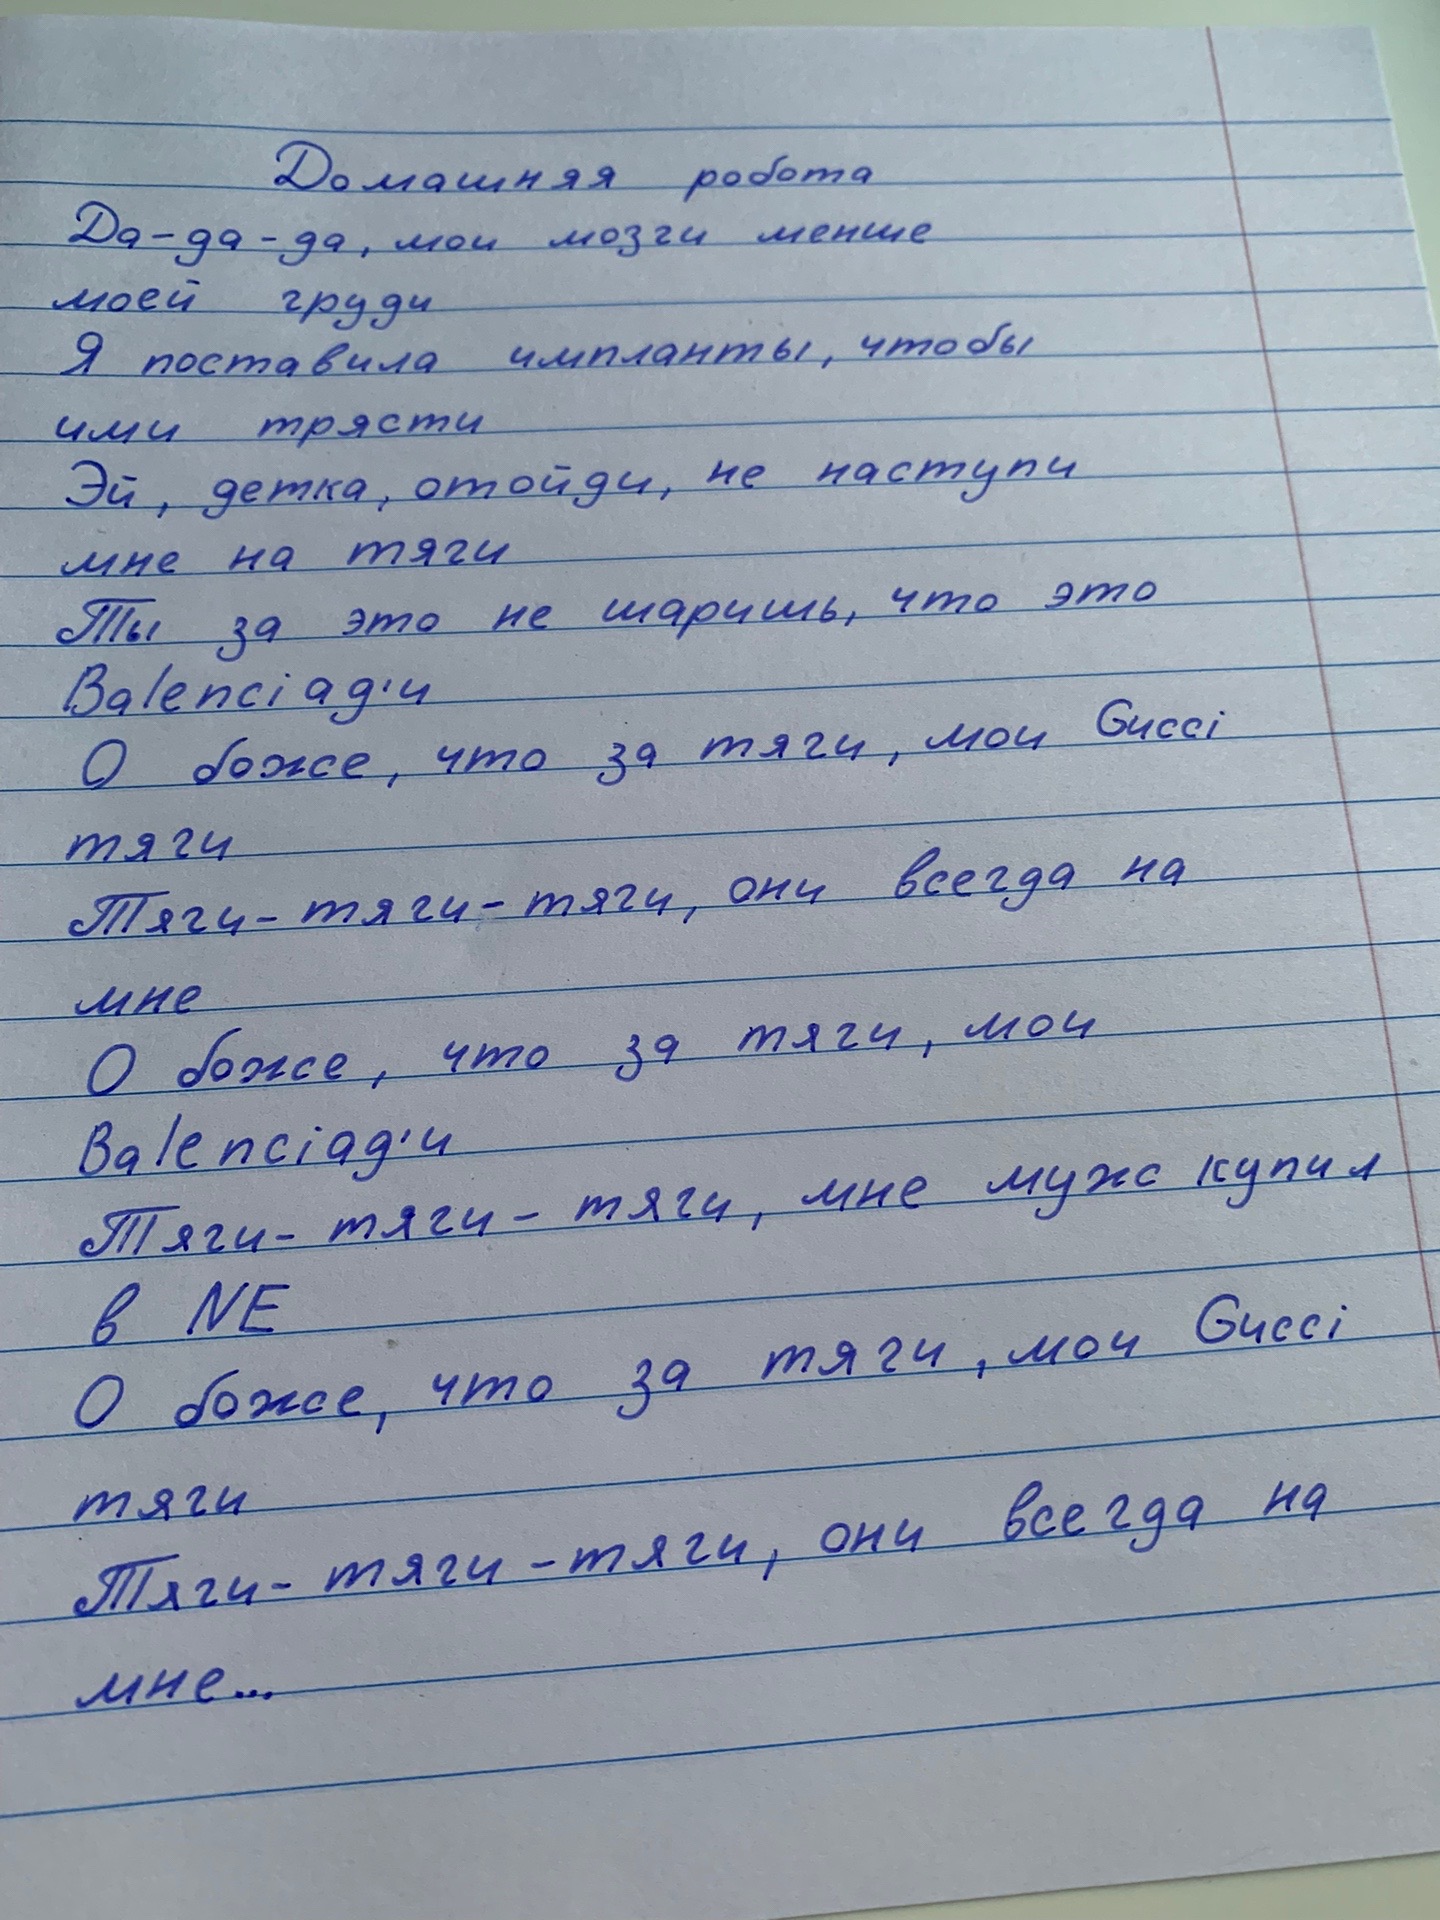 Домашняя робота
Да-да-да, мои мозги менше
моей груди
Я поставила импланты, чтобы
ими трясти
Эй, детка, отойди, не наступи
мне на тяги
Ты за это не шаришь, что это
Balenciag'и
О боже, что за тяги, мои Gucci
тяги
Тяги-тяги-тяги, они всегда на
мне
О боже, что за тяги, мои
Balenciag'и
Тяги-тяги-тяги, мне муж купил
в NE
О боже, что за тяги, мои Gucci
тяги
Тяги-тяги-тяги, они всегда на
мне...